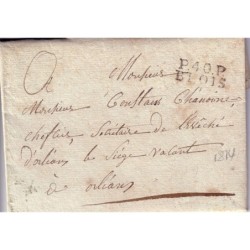 P.40.P
BLOIS
Monsieur
Monsieur Constans Chanoine
Secrétaire de l'Evêché
d'orléans le Siège vacant
à
orléans
1814